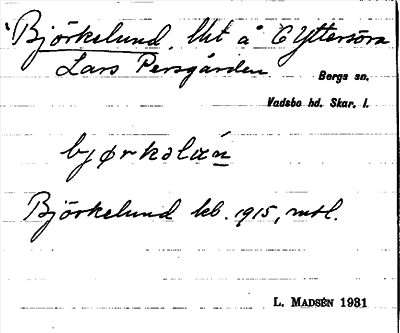 Björkelund, lht å Yttersöra
Lars Persgården
Bergs sn.
Vadsbo hd. Skar. l.
bjørkəlún
Björkelund kb. 1915, mtl.
L. MADSÉN 1931